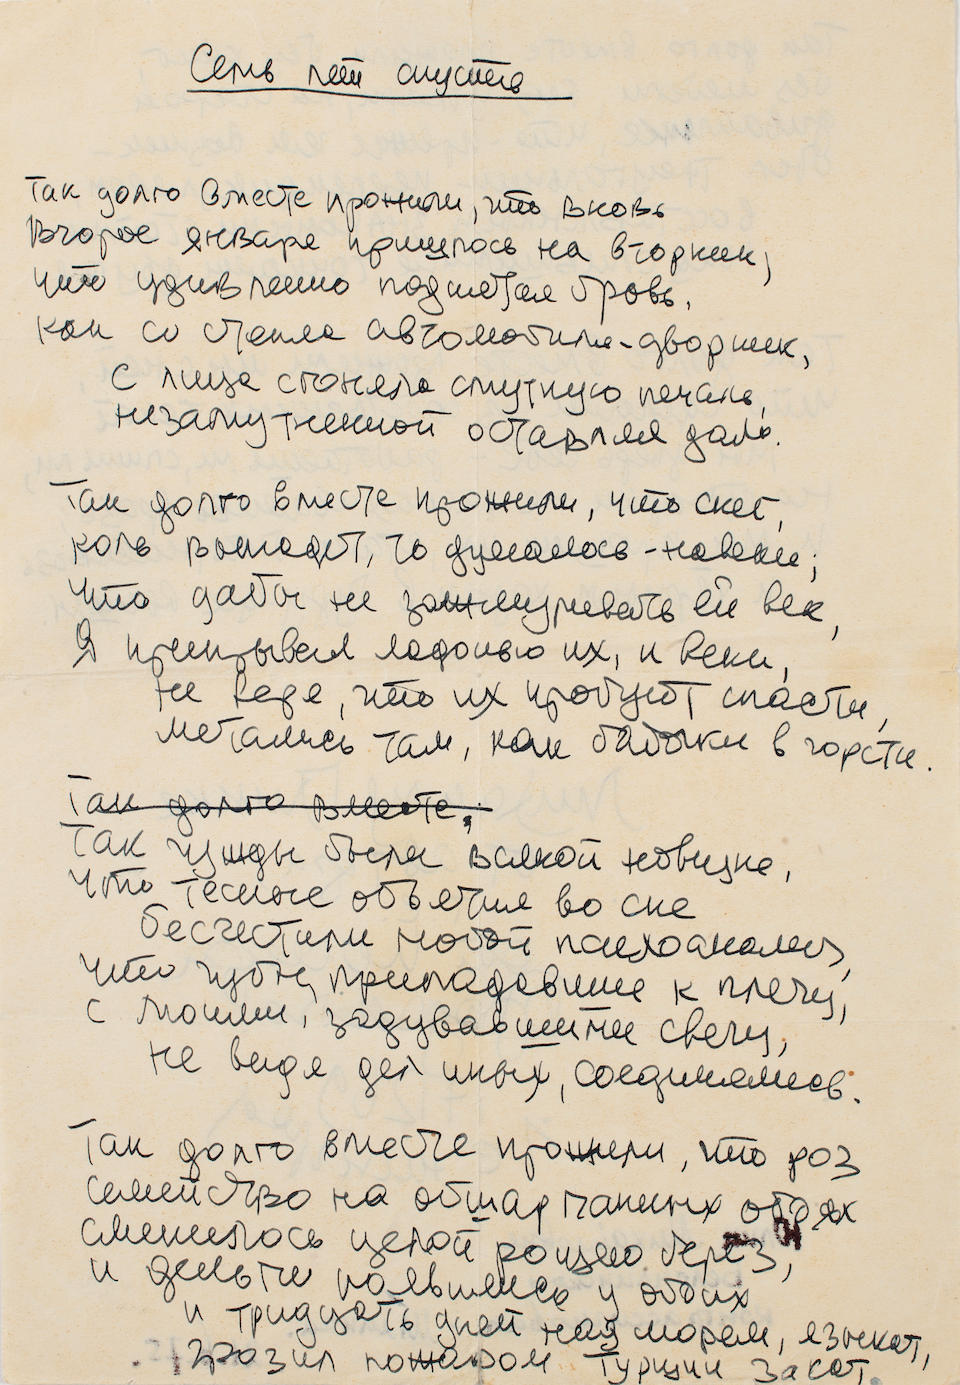 Семь лет спустя
Так долго вместе прожили, что вновь
Второе января пришлось на вторник,
что удивленно поднятая бровь,
как со стекла автомобиля-дворник,
с лица сгоняла смутную печаль,
незамутненной оставляя даль.
Так долго вместе прожили, что снег,
коль выпадет, то думалось-навеки;
что дабы не зажмуривать ей век,
Я прикрывал ладонью их, и веки,
не веря, что их пробуют спасти,
метались там, как бабочки в горсти.
Так долго вместе,
Так чужды были всякой новизне,
что тесные объятия во сне
бесчестили любой психоанализ,
что губы, припадавшие к плечу,
с моими, задувавшими свечу,
не видя дел иных, соединялись.
Так долго вместе прожили, что роз
семейство на обшарпанных обоях
сменилось целой рощею берез,
и деньги появились у обоих
и тридцать дней над морем, языкат,
грозил пожаром Турции закат.